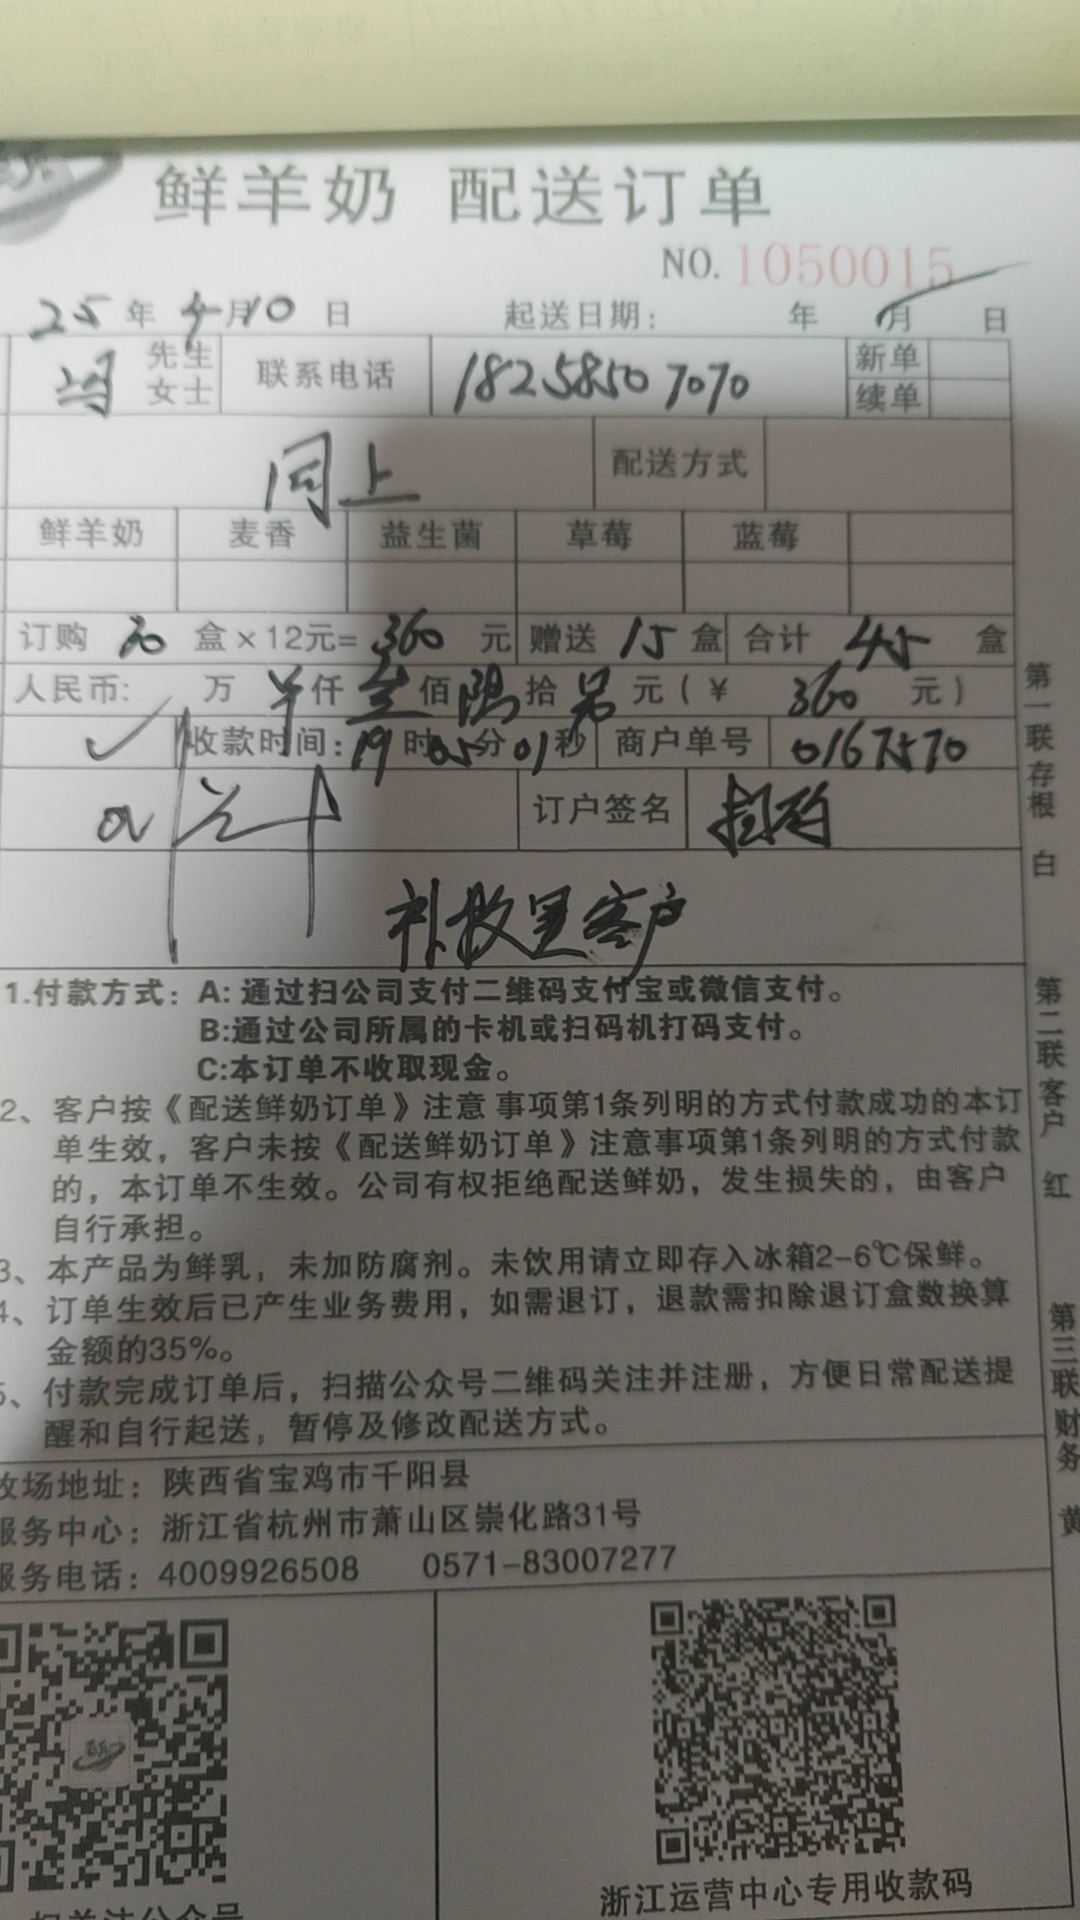 鲜羊奶 配送订单
NO. 1050015
25年4月10日 起送日期: 年 月 日
冯 先生 女士 联系电话 18258507070 新单 续单
同上 配送方式
鲜羊奶 麦香 益生菌 草莓 蓝莓
订购 30 盒×12元= 360 元 赠送 15 盒 合计 45 盒
人民币: 万 仟 叁 佰 陆 拾 另 元(¥ 360 元)
收款时间: 19 时 05 分 01 秒 商户单号 0167570
订户签名
补 客户
1.付款方式: A: 通过扫公司支付二维码支付宝或微信支付。
B:通过公司所属的卡机或扫码机打码支付。
C:本订单不收取现金。
2、客户按《配送鲜奶订单》注意 事项第1条列明的方式付款成功的本订
单生效，客户未按《配送鲜奶订单》注意事项第1条列明的方式付款
的，本订单不生效。公司有权拒绝配送鲜奶，发生损失的，由客户
自行承担。
3、本产品为鲜乳，未加防腐剂。未饮用请立即存入冰箱2-6℃保鲜。
4、订单生效后已产生业务费用，如需退订，退款需扣除退订盒数换算
金额的35%。
5、付款完成订单后，扫描公众号二维码关注并注册，方便日常配送提
醒和自行起送，暂停及修改配送方式。
牧场地址: 陕西省宝鸡市千阳县
服务中心: 浙江省杭州市萧山区崇化路31号
服务电话: 4009926508 0571-83007277
浙江运营中心专用收款码
第一联存根 白
第二联客户 红
第三联财务 黄